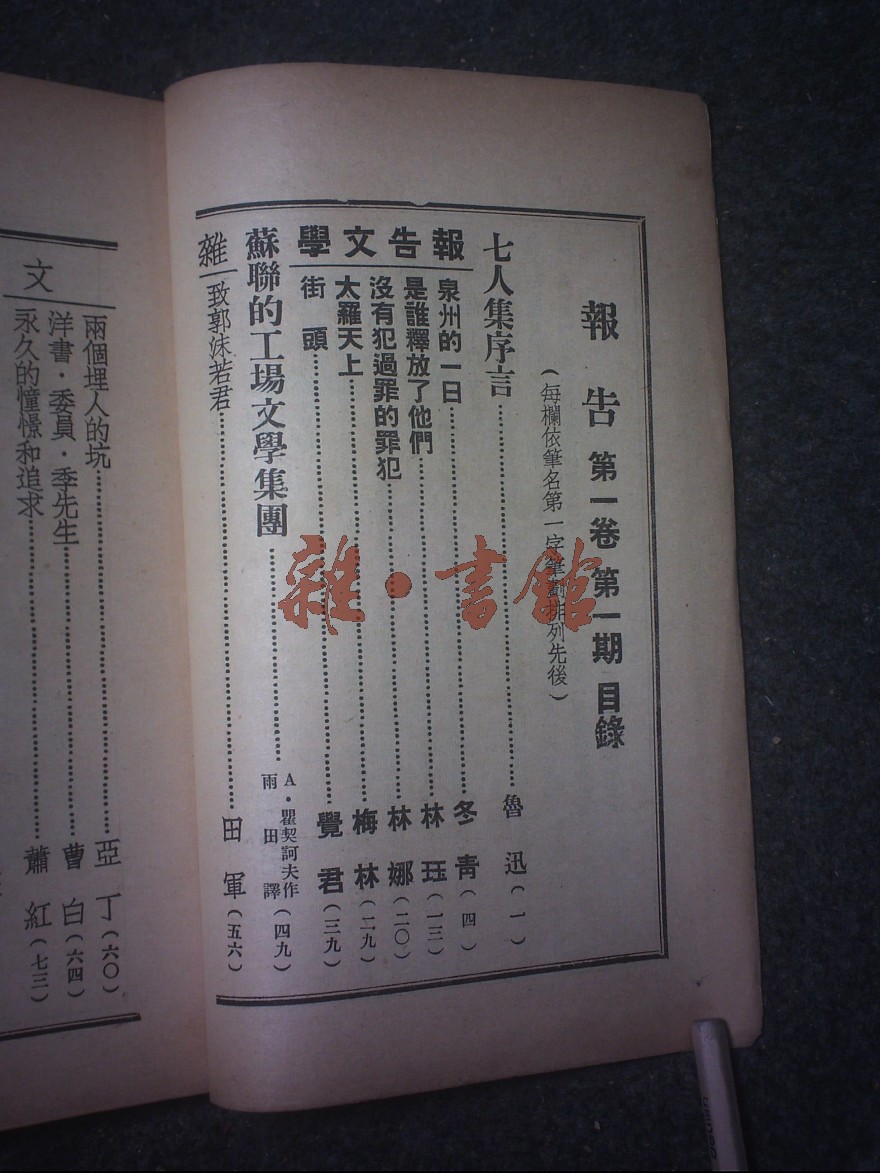 報告 第一卷 第一期 目錄
(每欄依筆名第一字筆劃排列先後)
七人集序言……魯迅(一)
報告文學
泉州的一日……冬青(四)
是誰釋放了他們……林珏(一三)
沒有犯過罪的罪犯……林娜(二〇)
大羅天上……梅林(二九)
街頭……覺君(三九)
蘇聯的工場文學集團……A·瞿契訶夫作
雨田譯(四九)
雜
致郭沫若君……田軍(五六)
文
兩個埋人的坑……亞丁(六〇)
洋書·委員·季先生……曹白(六四)
永久的憧憬和追求……蕭紅(七三)
雜·書館